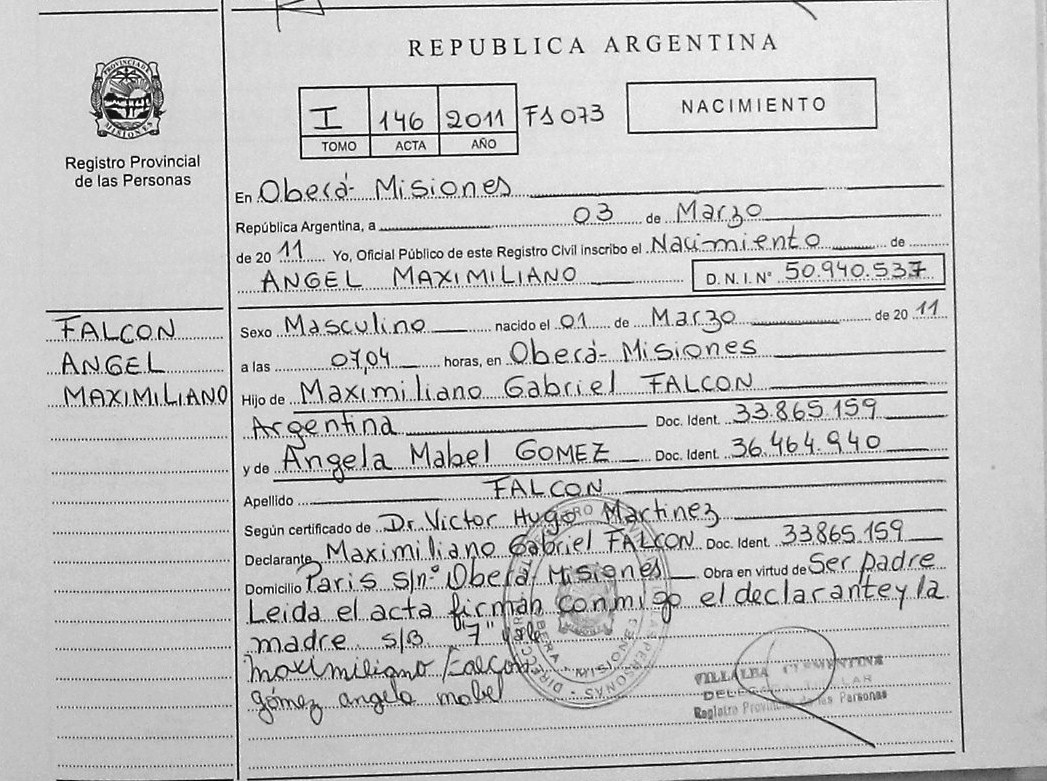 REPUBLICA ARGENTINA
PROVINCIA D MISIONES
Registro Provincial
de las Personas
I 146 2011 Fº 073
TOMO ACTA AÑO
NACIMIENTO
En Oberá- Misiones
República Argentina, a 03 de Marzo
de 2011 Yo, Oficial Público de este Registro Civil inscribo el Nacimiento de
ANGEL MAXIMILIANO D.N.I.Nº 50.940.537
FALCON
ANGEL
MAXIMILIANO
Sexo Masculino nacido el 01 de Marzo de 2011
a las 07,04 horas, en Oberá- Misiones
Hijo de Maximiliano Gabriel FALCON
Argentina Doc. Ident. 33.865.159
y de Angela Mabel GOMEZ Doc. Ident. 36.464.940
Apellido FALCON
Según certificado de Dr. Victor Hugo Martinez
Declarante Maximiliano Gabriel FALCON Doc. Ident. 33865.159
Domicilio Paris s/nº Oberá- Misiones Obra en virtud de Ser padre
Leida el acta firman conmigo el declarante y la
madre s/B "7" Vale
maximiliano Falcon
gómez angela mabel
VILLALBA CLEMENTINA
DELEGADA TITULAR
Registro Provincial de las Personas